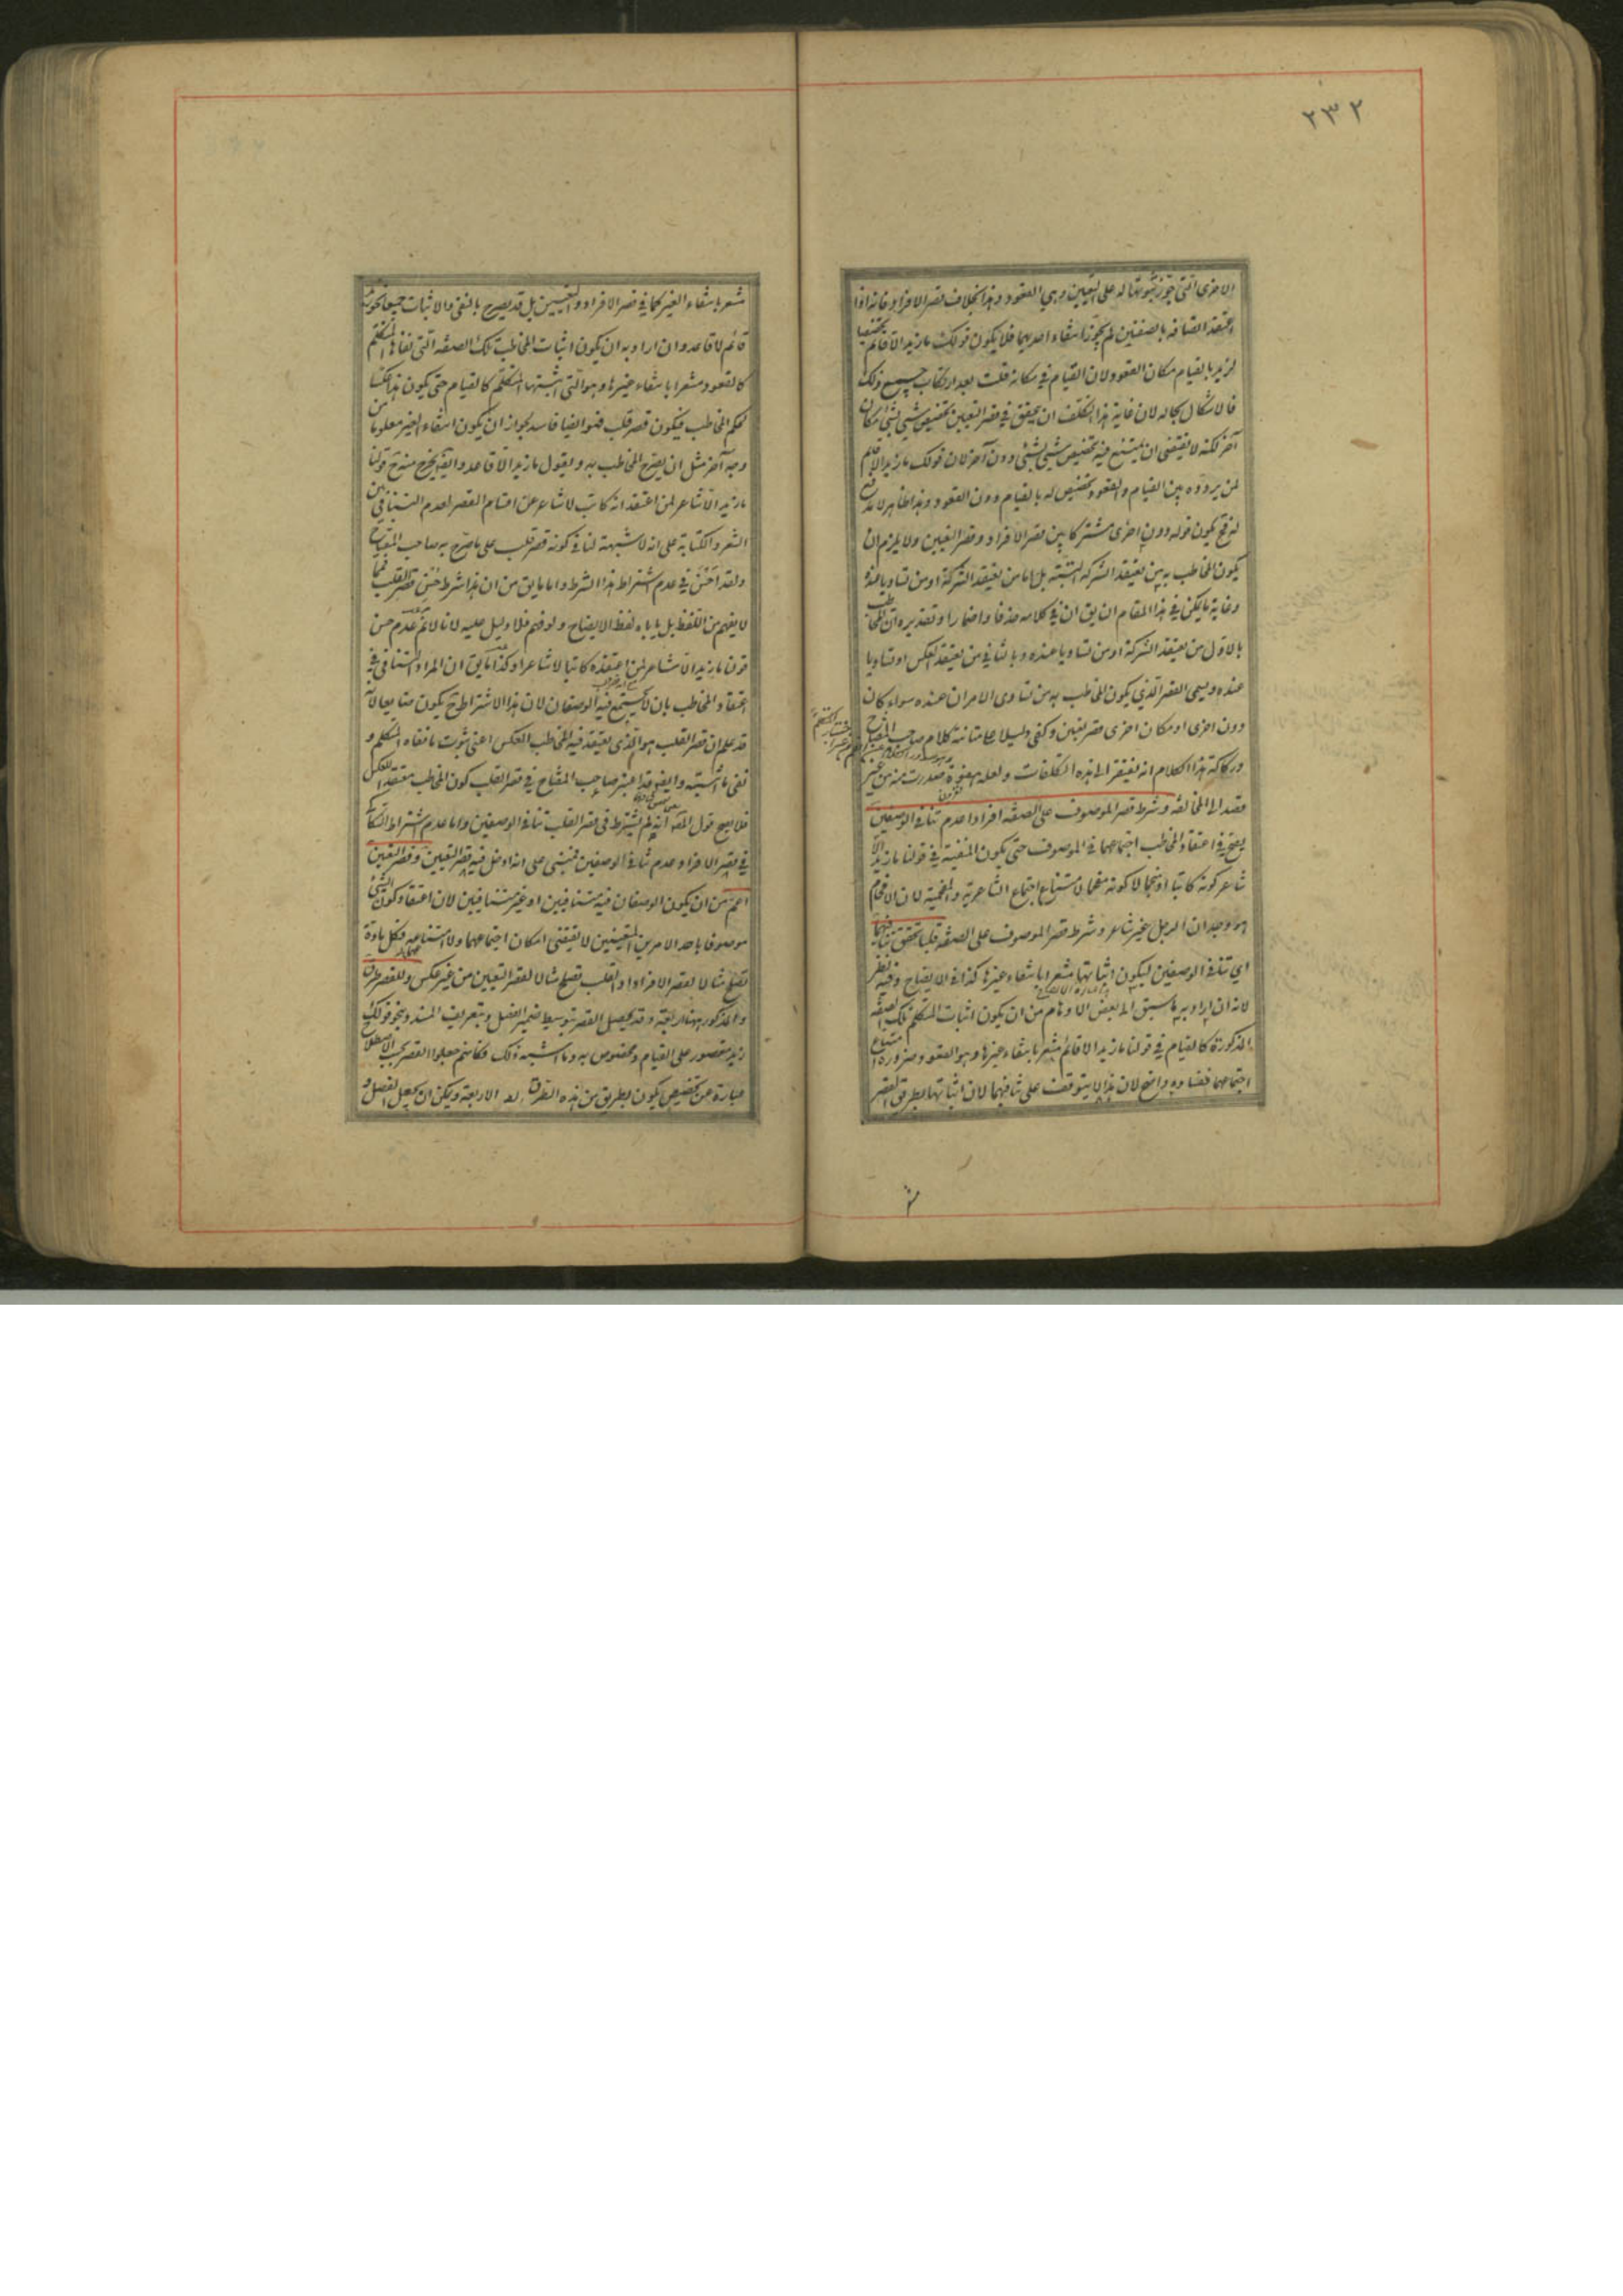 ٢٣٢
الاخرى التي جوز ثبوتها له على التعيين وهي القعود وهذا بخلاف قصر الافراد فانه اذا
اعتقد اتصافه بالصفتين لم يجوز انتفاء احديهما فلا يكون قولك ما زيد الا قائم تخصيصا
لزيد بالقيام مكان القعود لان القيام في مكانه قلت بعد ارتكاب جميع ذلك
فالاشكال بحاله لان غاية هذا التكلف ان يتحقق في قصر التعيين تخصيص شيئ بشيئ مكان
آخر لكنه لا يقتضي ان يمتنع فيه تخصيص شيئ بشيئ دون آخر لان قولك ما زيد الا قائم
لمن يردده بين القيام والقعود تخصيص له بالقيام دون القعود وهذا ظاهر لا مدفع
له فح يكون قوله دون اخرى مشتركا بين قصر الافراد وقصر التعيين ولا يلزم ان
يكون المخاطب به من يعتقد الشركة البتة بل اما من يعتقد الشركة او من تساويا عنده
وغاية ما يمكن في هذا المقام ان يق ان في كلامه حذفا واضمارا وتقديره ان المخاطب
بالاول من يعتقد الشركة او من تساويا عنده وبالثاني من يعتقد العكس او تساويا
عنده ويسمى القصر الذي يكون المخاطب به من تساوى الامران عنده سواء كان
دون اخرى او مكان اخرى قصر تعيين وكفى دليلا على متانة كلام صاحب المفتاح
وركاكة هذا الكلام انه يفتقر الى هذه التكلفات ولعله هفوة صدرت منه من غير
قصد الى المخالفة وشرط قصر الموصوف على الصفة افرادا عدم تنافي الوصفين
يصح في اعتقاد المخاطب اجتماعهما في الموصوف حتى يكون المنفية في قولنا ما زيد الا
شاعر كونه كاتبا او منجما لا كونه مفحما لامتناع اجتماع الشاعرية والمفحمية لان الافحام
هو وجدان الرجل غير شاعر وشرط قصر الموصوف على الصفة قلبا تحقق تنافيهما
اي تنافي الوصفين ليكون اثباتها مشعرا بانتفاء غيرها كذا في الايضاح وفيه نظر
لانه ان اراد به ما سبق الى بعض الاوهام من ان يكون اثبات المتكلم تلك الصفة
المذكورة كالقيام في قولنا ما زيد الا قائم مشعرا بانتفاء غيرها وهو القعود ضرورة امتناع
اجتماعهما ففساده واضح لان هذا لا يتوقف على تنافيهما لان اثباتها بطريق القصر
مشعر بانتفاء الغير كما في قصر الافراد والتعيين بل قد يصرح بالنفي والاثبات جميعا نحو زيد
قائم لا قاعد وان اراد به ان يكون اثبات المخاطب تلك الصفة التي نفاها المتكلم
كالقعود مشعرا بانتفاء غيرها وهو التي اثبتها المتكلم كالقيام حتى يكون هذا عكسا
لحكم المخاطب فيكون قصر قلب فهو ايضا فاسد لجواز ان يكون انتفاء الغير معلوما من
وجه آخر مثل ان يصرح المخاطب به ويقول ما زيد الا قاعد وايضا يخرج منه ح قولنا
ما زيد الا شاعر لمن اعتقد انه كاتب لا شاعر عن اقسام القصر لعدم التنافي بين
الشعر والكتابة على انه لا شبهة لنا في كونه قصر قلب على ما صرح به صاحب المفتاح
ولقد احسن في عدم اشتراط هذا الشرط واما ما يق من ان هذا شرط حسن قصر القلب فمما
لا يفهم من اللفظ بل يأباه لفظ الايضاح ولو فهم فلا دليل عليه لانا لانم عدم حسن
قولنا ما زيد الا شاعر لمن اعتقده كاتبا لا شاعرا وكذا ما يق ان المراد التنافي في
اعتقاد المخاطب بان لا يجتمع فيه الوصفان لان هذا الاشتراط ح يكون ضايعا لانه
قد علم ان قصر القلب هو الذي يعتقد فيه المخاطب العكس اعني ثبوت ما نفاه المتكلم و
نفي ما اثبته وايضا قد اعتبر صاحب المفتاح في قصر القلب كون المخاطب معتقدا للعكس
فلا يصح قول المصـ انه لم يشترط في قصر القلب تنافي الوصفين واما عدم اشتراط السكاكي
في قصر الافراد عدم تنافي الوصفين فمبني على انه ادخل فيه قصر التعيين وقصر التعيين
اعم من ان يكون الوصفان فيه متنافيين او غير متنافيين لان اعتقاد كون الشيئ
موصوفا باحد الامرين المعينين لا يقتضي امكان اجتماعهما ولا امتناعه فكل مادة
تصلح مثالا لقصر الافراد او القلب تصلح مثالا لقصر التعيين من غير عكس وللقصر طرق
والمذكور ههنا اربعة وقد يحصل القصر بتوسيط ضمير الفصل وبتعريف المسند وبنحو قولك
زيد مقصور على القيام ومخصوص به وما اشبه ذلك فكأنهم جعلوا القصر بحسب الاصطلاح
عبارة عن تخصيص يكون بطريق من هذه الطرق الاربعة ويمكن ان يجعل الفصل و